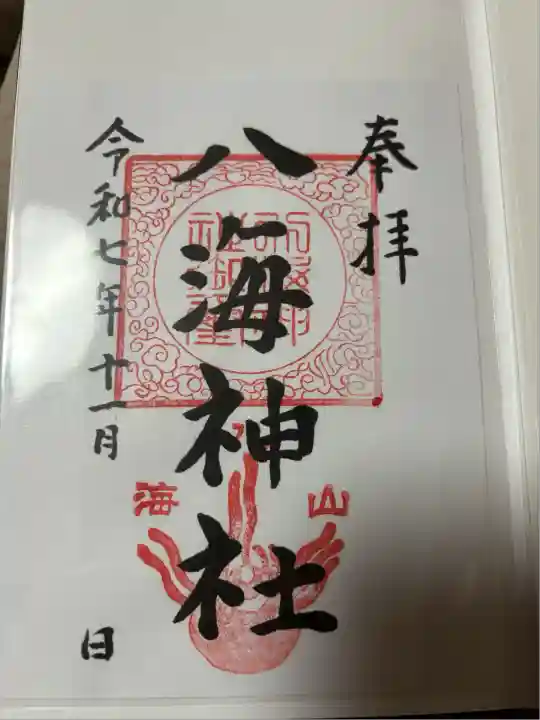 奉拝
八海神社
山
海
令和七年十一月
日